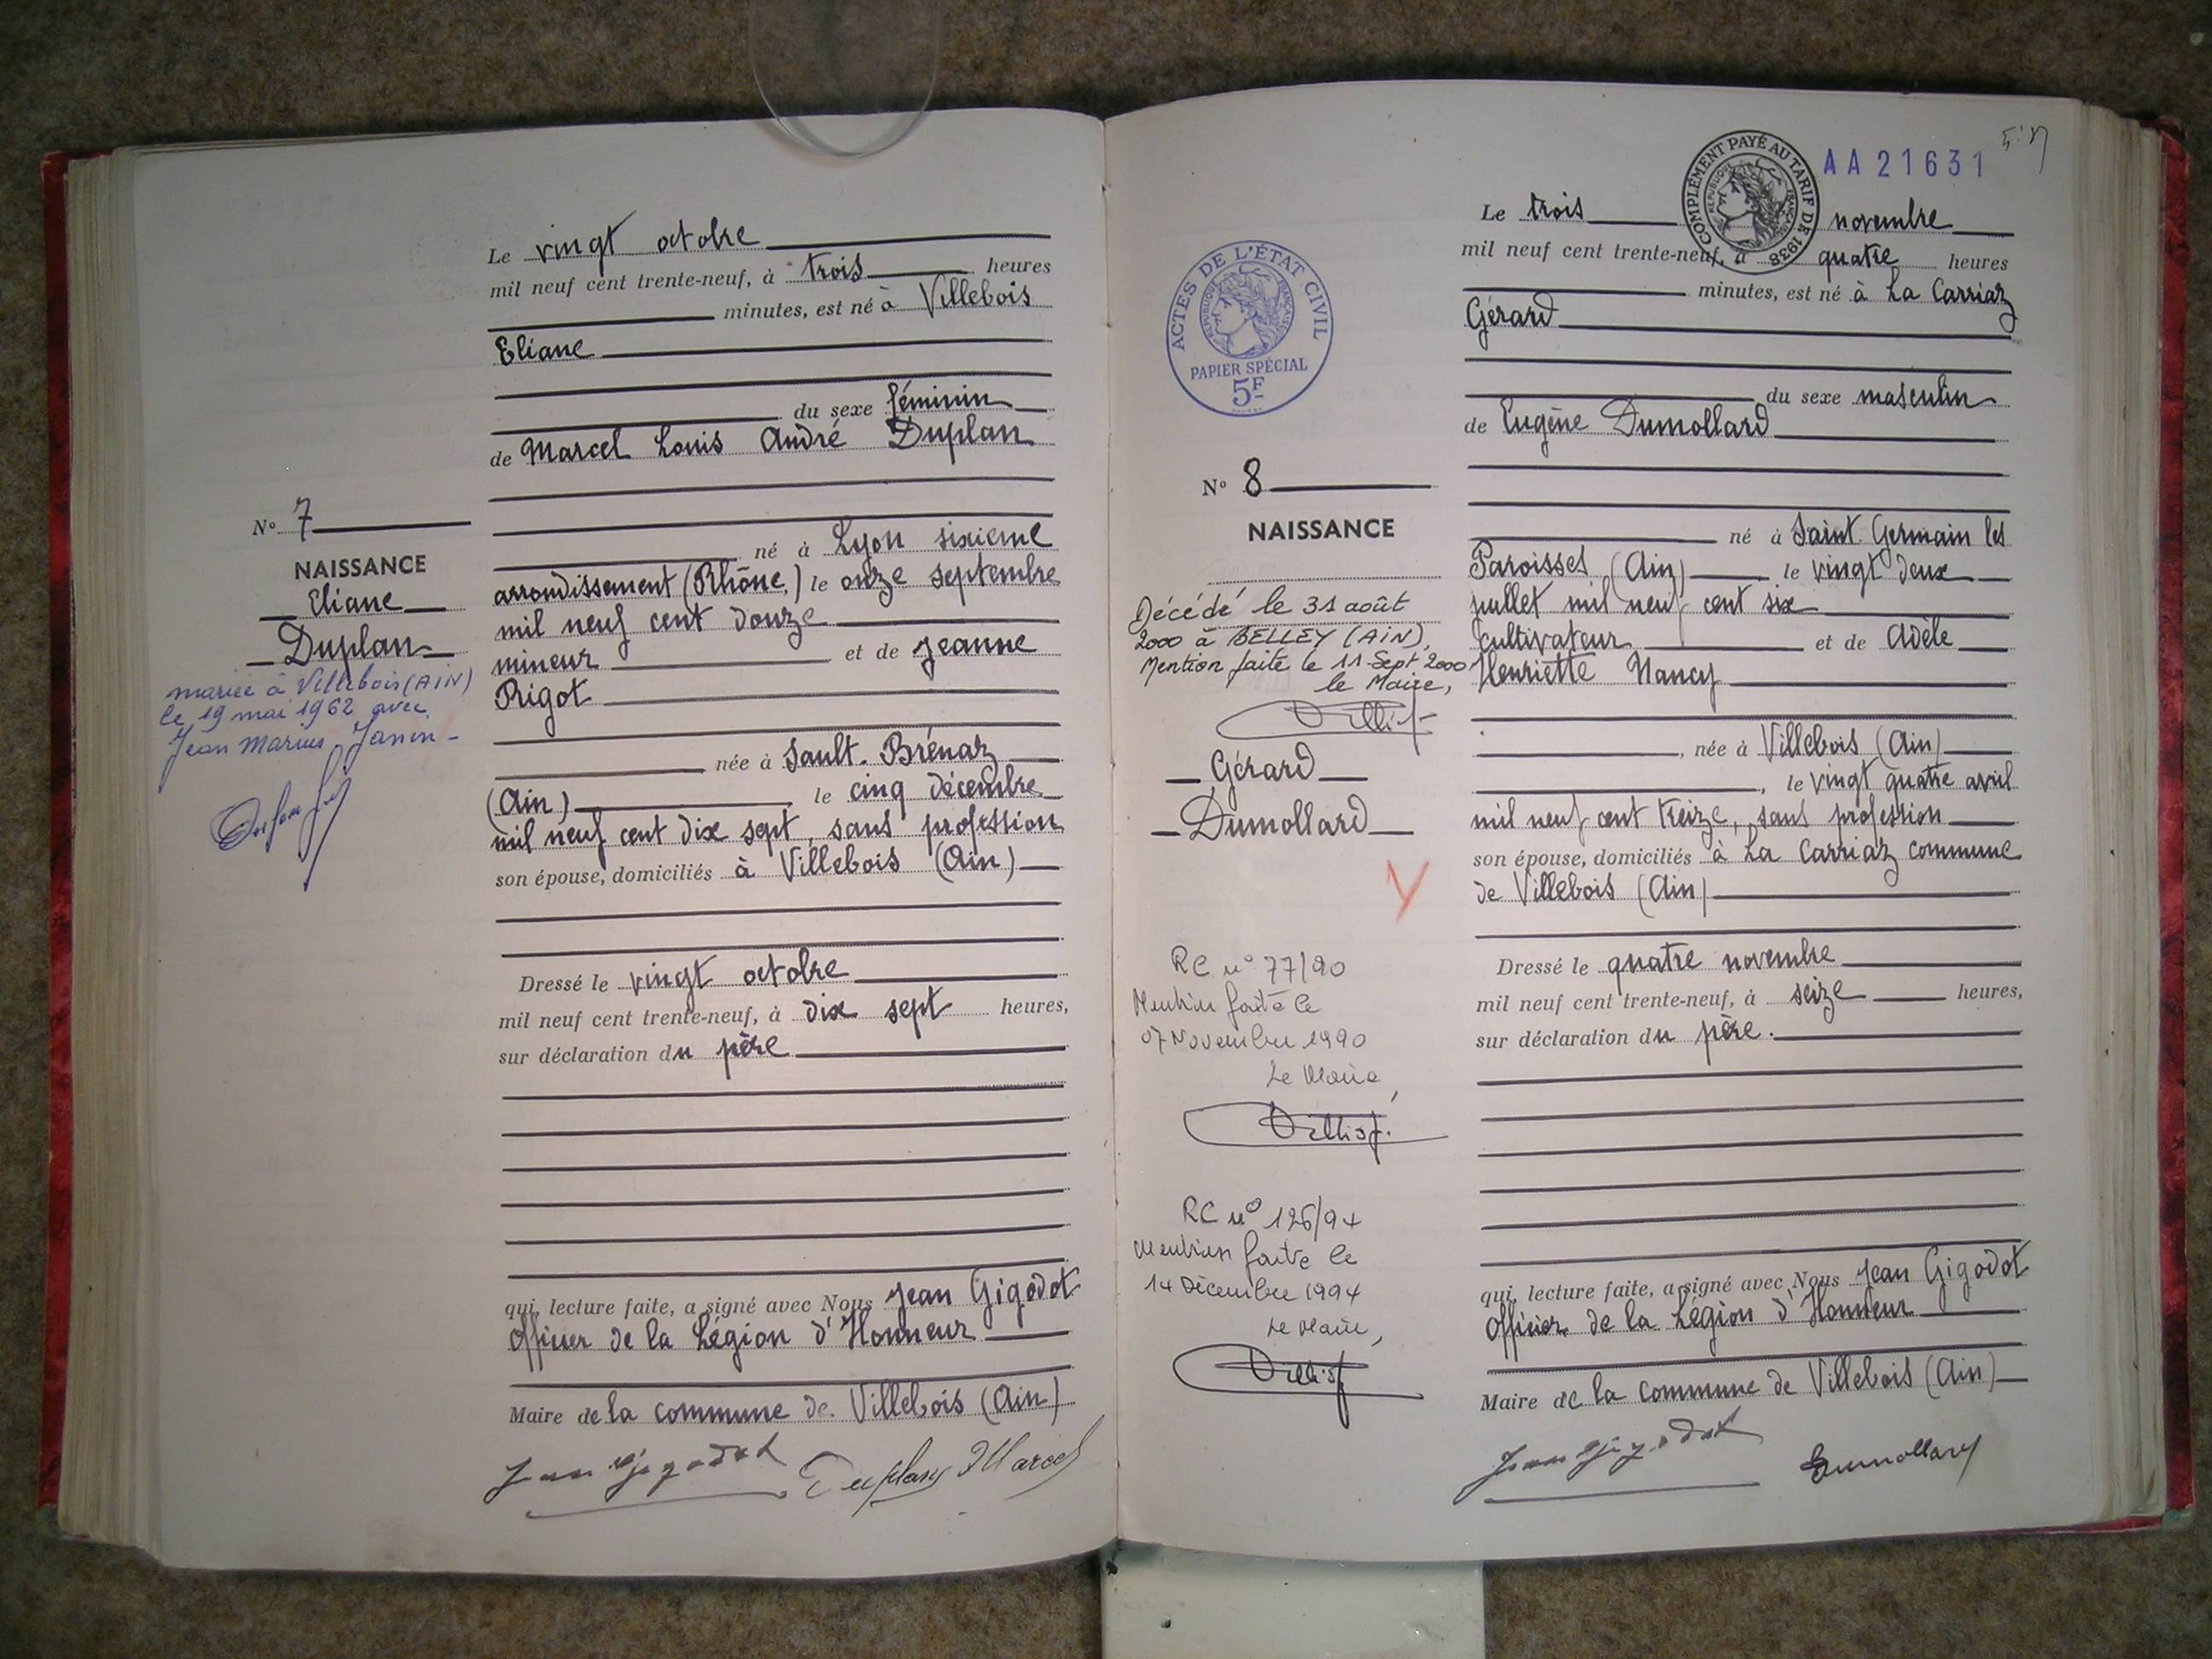 Le vingt octobre
mil neuf cent trente-neuf, à trois heures
minutes, est né à Villebois
Eliane
du sexe féminin
de Marcel Louis André Duplan
né à Lyon sixième
arrondissement (Rhône,) le onze septembre
mil neuf cent douze
mineur et de Jeanne
Rigot
née à Sault-Brénaz
(Ain) le cinq décembre
mil neuf cent dix sept, sans profession
son épouse, domiciliés à Villebois (Ain)
Dressé le vingt octobre
mil neuf cent trente-neuf, à dix sept heures,
sur déclaration du père
qui, lecture faite, a signé avec Nous Jean Gigodot
Officier de la Légion d'Honneur
Maire de la commune de Villebois (Ain)
Jean Gigodot Duplan Marcel
N° 7
NAISSANCE
Eliane
Duplan
mariée à Villebois (AIN)
le 19 mai 1962 avec
Jean Marius Janin -
AA21631
COMPLÉMENT PAYÉ AU TARIF DE 1938
RÉPUBLIQUE FRANÇAISE
Le trois novembre
mil neuf cent trente-neuf, à quatre heures
minutes, est né à La Carriaz
Gérard
du sexe masculin
de Eugène Dumollard
né à Saint Germain les
Paroisses (Ain) le vingt deux
juillet mil neuf cent six
cultivateur et de Adèle
Henriette Nancy
, née à Villebois (Ain)
, le vingt quatre avril
mil neuf cent treize, sans profession
son épouse, domiciliés à La Carriaz commune
de Villebois (Ain)
Dressé le quatre novembre
mil neuf cent trente-neuf, à seize heures,
sur déclaration du père.
qui, lecture faite, a signé avec Nous Jean Gigodot
Officier de la Légion d'Honneur
Maire de la commune de Villebois (Ain)
Jean Gigodot Dumollard
ACTES DE L'ÉTAT CIVIL
RÉPUBLIQUE FRANÇAISE
PAPIER SPÉCIAL
5F
N° 8
NAISSANCE
Décédé le 31 août
2000 à BELLEY (AIN),
Mention faite le 11 Sept 2000
le Maire,
Gérard
Dumollard
RC n° 77/90
Mention faite le
07 Novembre 1990
Le Maire,
RC n° 126/94
Mention faite le
14 Décembre 1994
Le Maire,